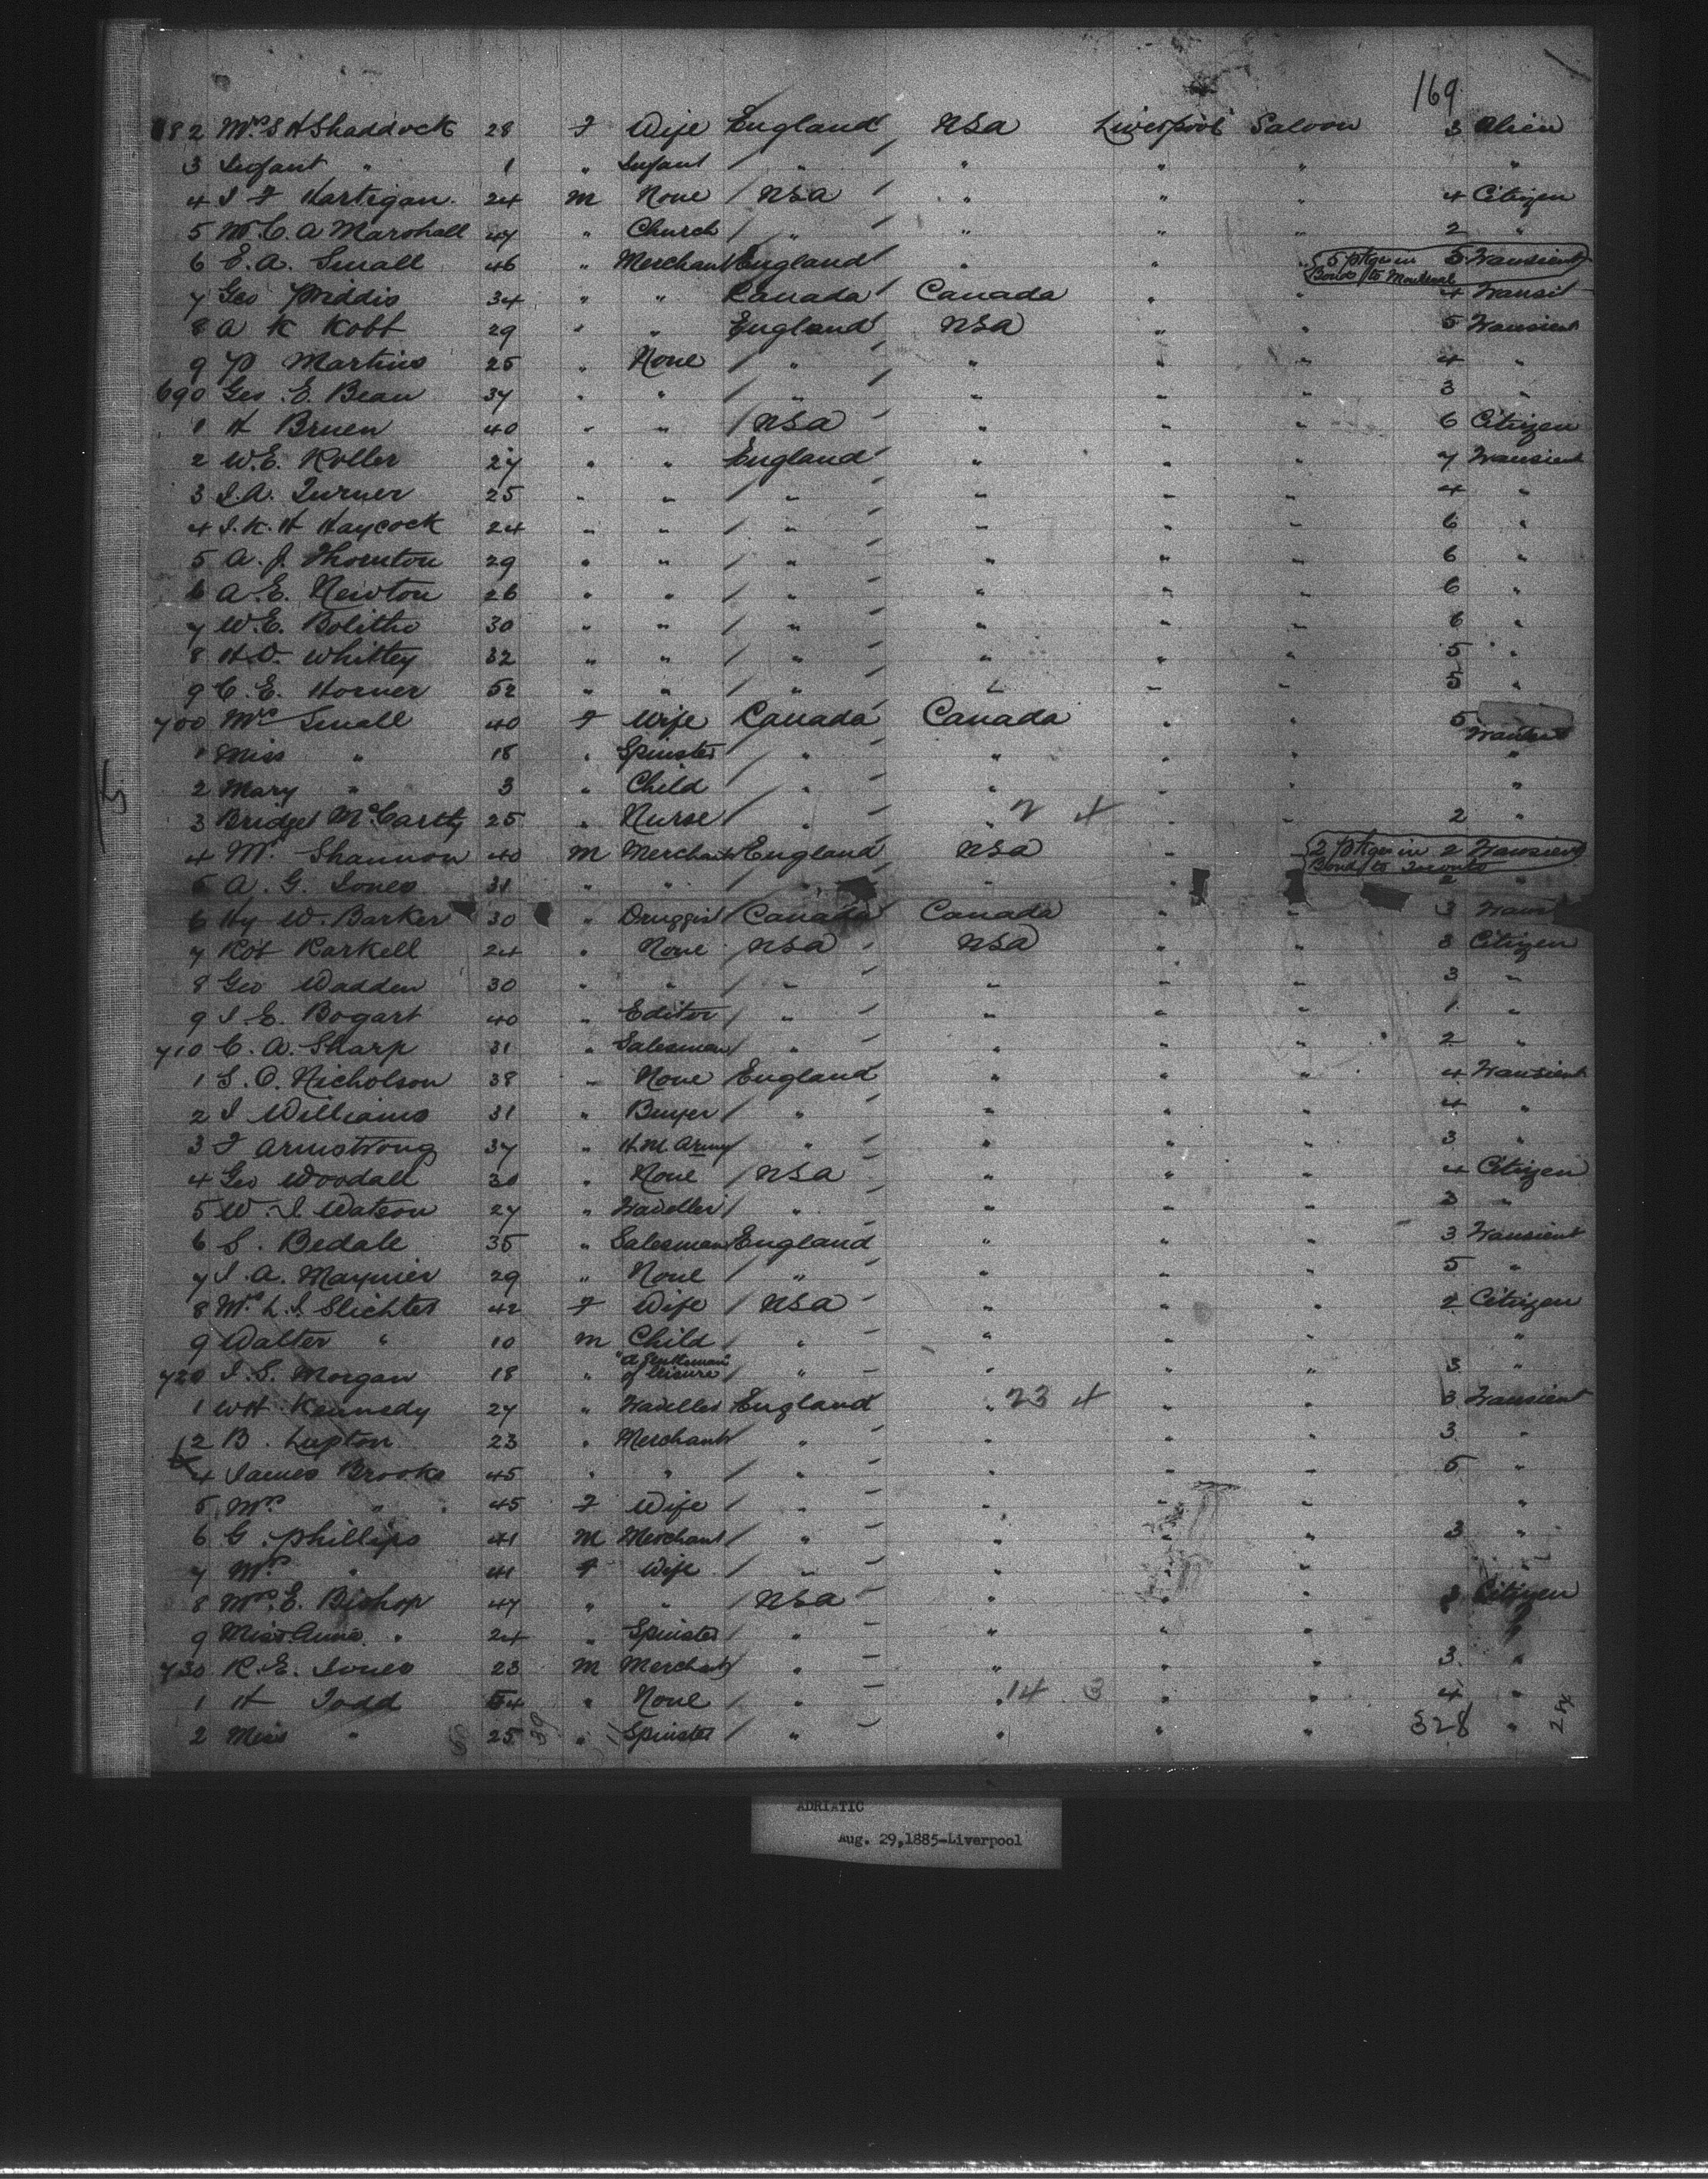 169
682 Mrs S H Shaddock 28 F Wife England USA Liverpool Saloon 3 Alien
3 Infant " 1 " Infant / " " " " "
4 J F Hartigan 24 M None / USA " " " 4 Citizen
5 W. C. A Marshall 47 " Church / " " " " 2 "
6 E. A. Small 46 " Merchant England " " " 5 pkgs in Bond to Montreal 5 Transient
7 Geo Piddis 34 " " Canada Canada " " 4 Transit
8 A K Kobb 29 " " England USA " " 5 Transient
9 P Martins 25 " None / " " " " 4 "
690 Geo. E. Bean 37 " " / " " " " 3 "
1 H Bruen 40 " " / USA " " " 6 Citizen
2 W. E. Roller 27 " " England " " " 7 Transient
3 J. A. Turner 25 " " / " " " " 4 "
4 J. K. H Haycock 24 " " / " " " " 6 "
5 A. J. Thornton 29 " " / " " " " 6 "
6 A. E. Newton 26 " " / " " " " 6 "
7 W. E. Bolitho 30 " " / " " " " 6 "
8 H. O. Whittey 32 " " / " " " " 5 "
9 C. E. Horner 52 " " / " " " " 5 "
700 Mrs Small 40 F Wife Canada Canada " " 5 Transient
1 Miss " 18 " Spinster / " " " " "
2 Mary " 3 " Child / " " " " "
3 Bridget McCarthy 25 " Nurse / " " 2 4 " " 2 "
4 Mr. Shannon 40 M Merchant England USA " " 2 pkgs in Bond to Toronto 2 Transient
5 A. G. Jones 31 " " / " " " " 2 "
6 Hy W. Barker 30 " Druggist / Canada Canada " " 3 Trans
7 Rob Karkell 24 " None USA USA " " 3 Citizen
8 Geo Wadden 30 " " / " " " " 3 "
9 J. E. Bogart 40 " Editor / " " " " 1 "
710 C. A. Sharp 31 " Salesman / " " " " 2 "
1 S. O. Nicholson 38 " None England " " " 4 Transient
2 J Williams 31 " Buyer / " " " " 4 "
3 F Armstrong 37 " H. M. Army / " " " " 3 "
4 Geo Woodall 30 " None / USA " " " 4 Citizen
5 W. J. Watson 27 " Traveller / " " " " 3 "
6 S. Bedale 35 " Salesman England " " " 3 Transient
7 J. A. Maynier 29 " None / " " " " 5 "
8 Mrs. L. S. Slichter 42 F Wife / USA " " " 2 Citizen
9 Walter " 10 M Child / " " " " "
720 J. S. Morgan 18 " "A Gentleman of leisure" / " " " " 3 "
1 W H Kennedy 27 " Traveller England " 23 4 " " 3 Transient
2 B. Lupton 23 " Merchant / " " " " 3 "
4 James Brooks 45 " " / " " " " 5 "
5 Mrs " 45 F Wife / " " " " "
6 G. Phillips 41 M Merchant / " " " " 3 "
7 Mrs " 41 F Wife / " " " " "
8 Mrs. E. Bishop 47 " " / USA " " " 3 Citizen
9 Miss Annie " 24 " Spinster / " " " " "
730 R. E. Jones 23 M Merchant / " " " " 3 "
1 H Todd 54 " None / " " 14 3 " " 4 "
2 Miss " 25 39 " Spinster / " " " " 328 " 284
ADRIATIC
Aug. 29,1885-Liverpool